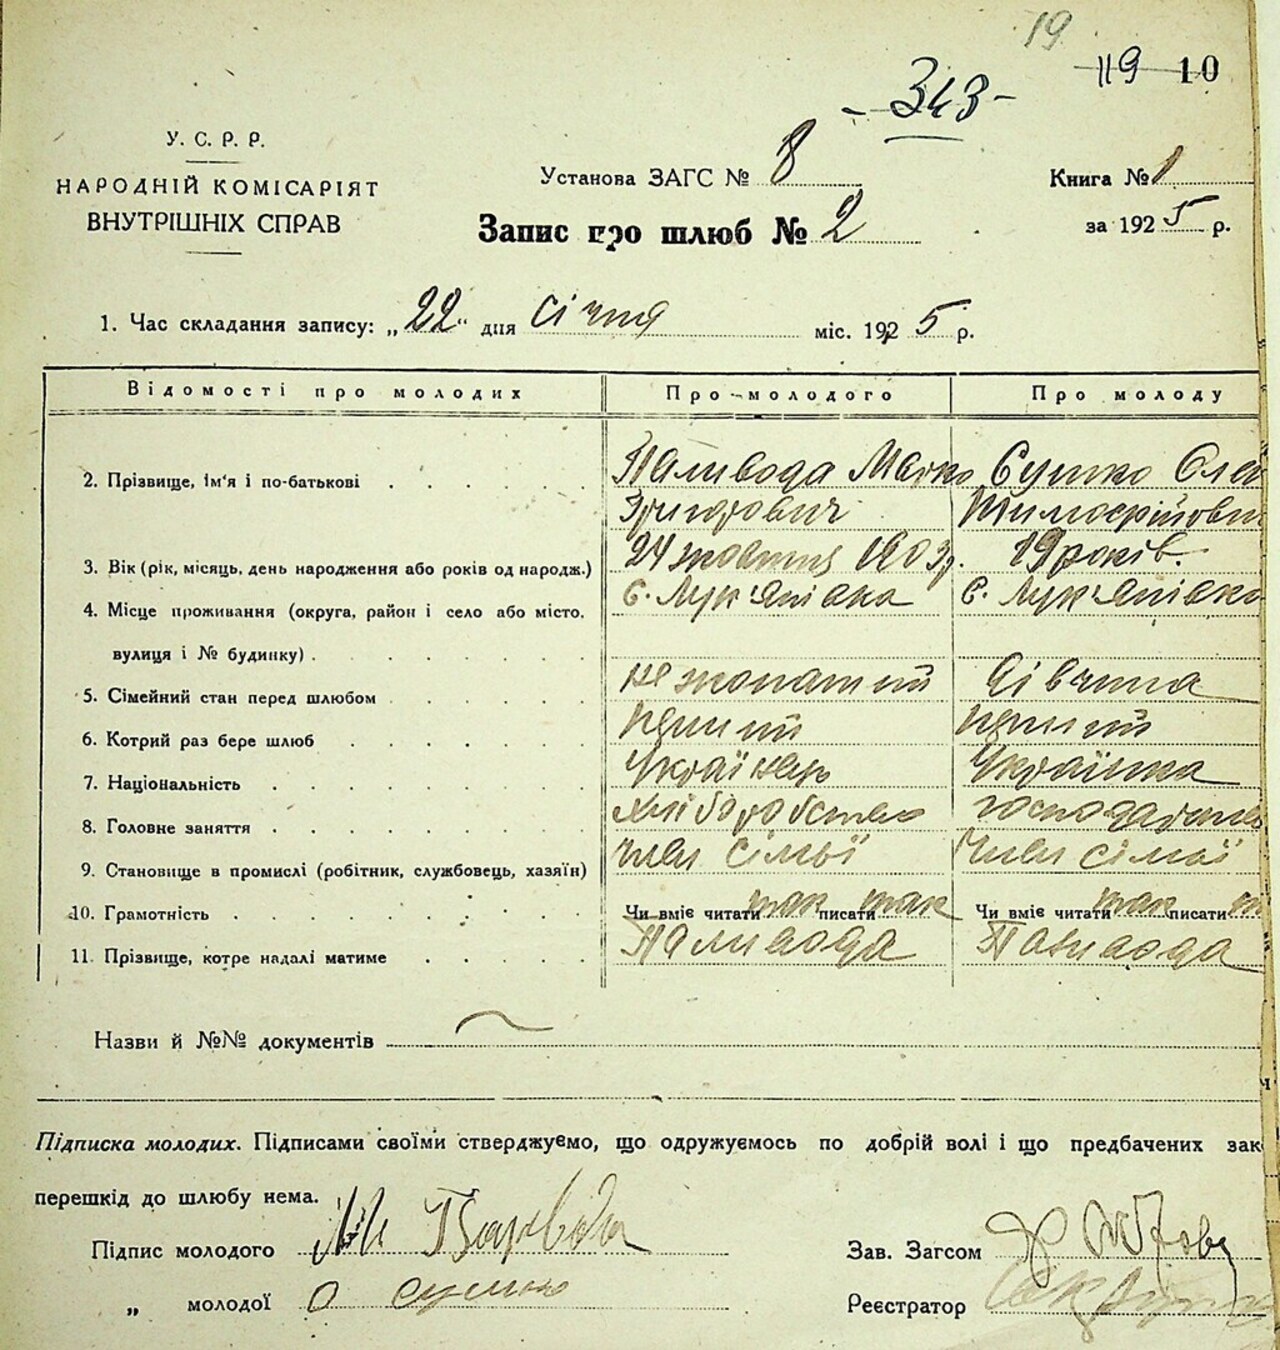 19
119 10
- 343 -
У. С. Р. Р.
НАРОДНІЙ КОМІСАРІЯТ
ВНУТРІШНІХ СПРАВ
Установа ЗАГС № 8
Книга № 1
Запис про шлюб № 2
за 1925 р.
1. Час складання запису: „22“ дня січня міс. 1925 р.
Відомості про молодих Про молодого Про молоду
2. Прізвище, ім'я і по-батькові Паливода Марко Сушко Оле
Григорович Тимофійовн
3. Вік (рік, місяць, день народження або років од народж.) 24 жовтня 1903р. 19 років.
4. Місце проживання (округа, район і село або місто, с. Лук'янівка с. Лук'янівка
вулиця і № будинку)
5. Сімейний стан перед шлюбом не жонатий дівчина
6. Котрий раз бере шлюб перший перший
7. Національність Українець Українка
8. Головне заняття хліборобство господарство
9. Становище в промислі (робітник, службовець, хазяїн) член сімьї член сімьї
10. Грамотність Чи вміє читати так писати так Чи вміє читати так писати
11. Прізвище, котре надалі матиме Паливода Паливода
Назви й №№ документів
Підписка молодих. Підписами своїми стверджуємо, що одружуємось по добрій волі і що предбачених зак
перешкід до шлюбу нема.
Підпис молодого
Зав. Загсом
„ молодої О Сушко
Реєстратор